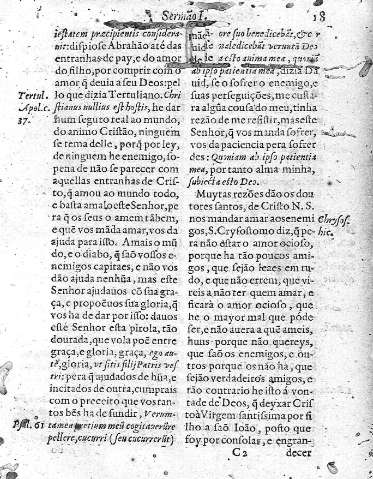 Sermão I. 18
iestatem præcipientis considera-
uit: dispiose Abrahão até das
entranhas de pay, e do amor
do filho, por comprir com o
amor q̃ deuia a seu Deos: pel
lo que dizia Tertuliano. Chri
stianus nullius est hostis, he dar
hum seguro real ao mundo,
do animo Cristão, ninguem
se tema delle, porq̃ por ley,
de ninguem he enemigo, so-
pena de não se parecer com
aquellas entranhas de Cris-
to, q̃ amou ao mundo todo,
e basta amalo este Senhor, pe
ra q̃ os seus o amem tãbem,
e que vos mãda amar, vos da
ajuda para isso. Amais o mũ
do, e o diabo, q̃ saõ vossos e-
nemigos capitaes, e não vos
dão ajuda nenhũa, mas este
Senhor ajudauos cõ sua gra-
ça, e propoẽuos sua gloria, q̃
vos ha de dar por isso: dauos
este Senhor esta pirola, tão
dourada, que vola poẽ entre
graça, e gloria, graça, ego au-
tẽ, gloria, vt sitis filij Patris ve
stri: pera q̃ ajudados de hũa, e
incitados de outra, cumprais
com o preceito que vos tan-
tos bẽs ha de fundir, Verum-
tamen pretium meũ cogitauerũt
repellere, cucurri (seu cucurrerũt)
Tertul.
Apol. c.
37.
Psal. 61
ore suo benedicebãt, & cor
de suo maledicebãt veruntã Deo
subiecta esto anima mea, quoniã
ab ipso patientia mea, dizia Da
uid, se o sofrer o enemigo, e
suas perseguições, me custa
ra algũa cousa do meu, tinha
rezão de me resistir, mas este
Senhor, q̃ vos manda sofrer,
vos da paciencia pera sofrer
des: Quoniam ab ipso patientia
mea, por tanto alma minha,
subiecta esto Deo.
Muytas rezões dão os dou
tores santos, de Cristo N. S.
nos mandar amar aos enemi
gos, S. Crysostomo diz, q̃ pe-
ra não estar o amor ocioso,
porque ha tão poucos ami-
gos, que sejão lizes em tu-
do, e que não errem, que vi-
reis a não ter quem amar, e
ficará o amor ocioso, que
he o mayor mal que póde
ser, e não auera a quẽ ameis,
huns porque não quereys,
que saõ os enemigos, e ou-
tros porque os não ha, que
sejão verdadeiros amigos, e
tão contrario he isto á von-
tade de Deos, q̃ deyxar Cris
to à Virgem santissima por fi
lho a saõ Ioão, posto que
foy por consolar, e engran-
Chrysos.
hic.
C 2 decer